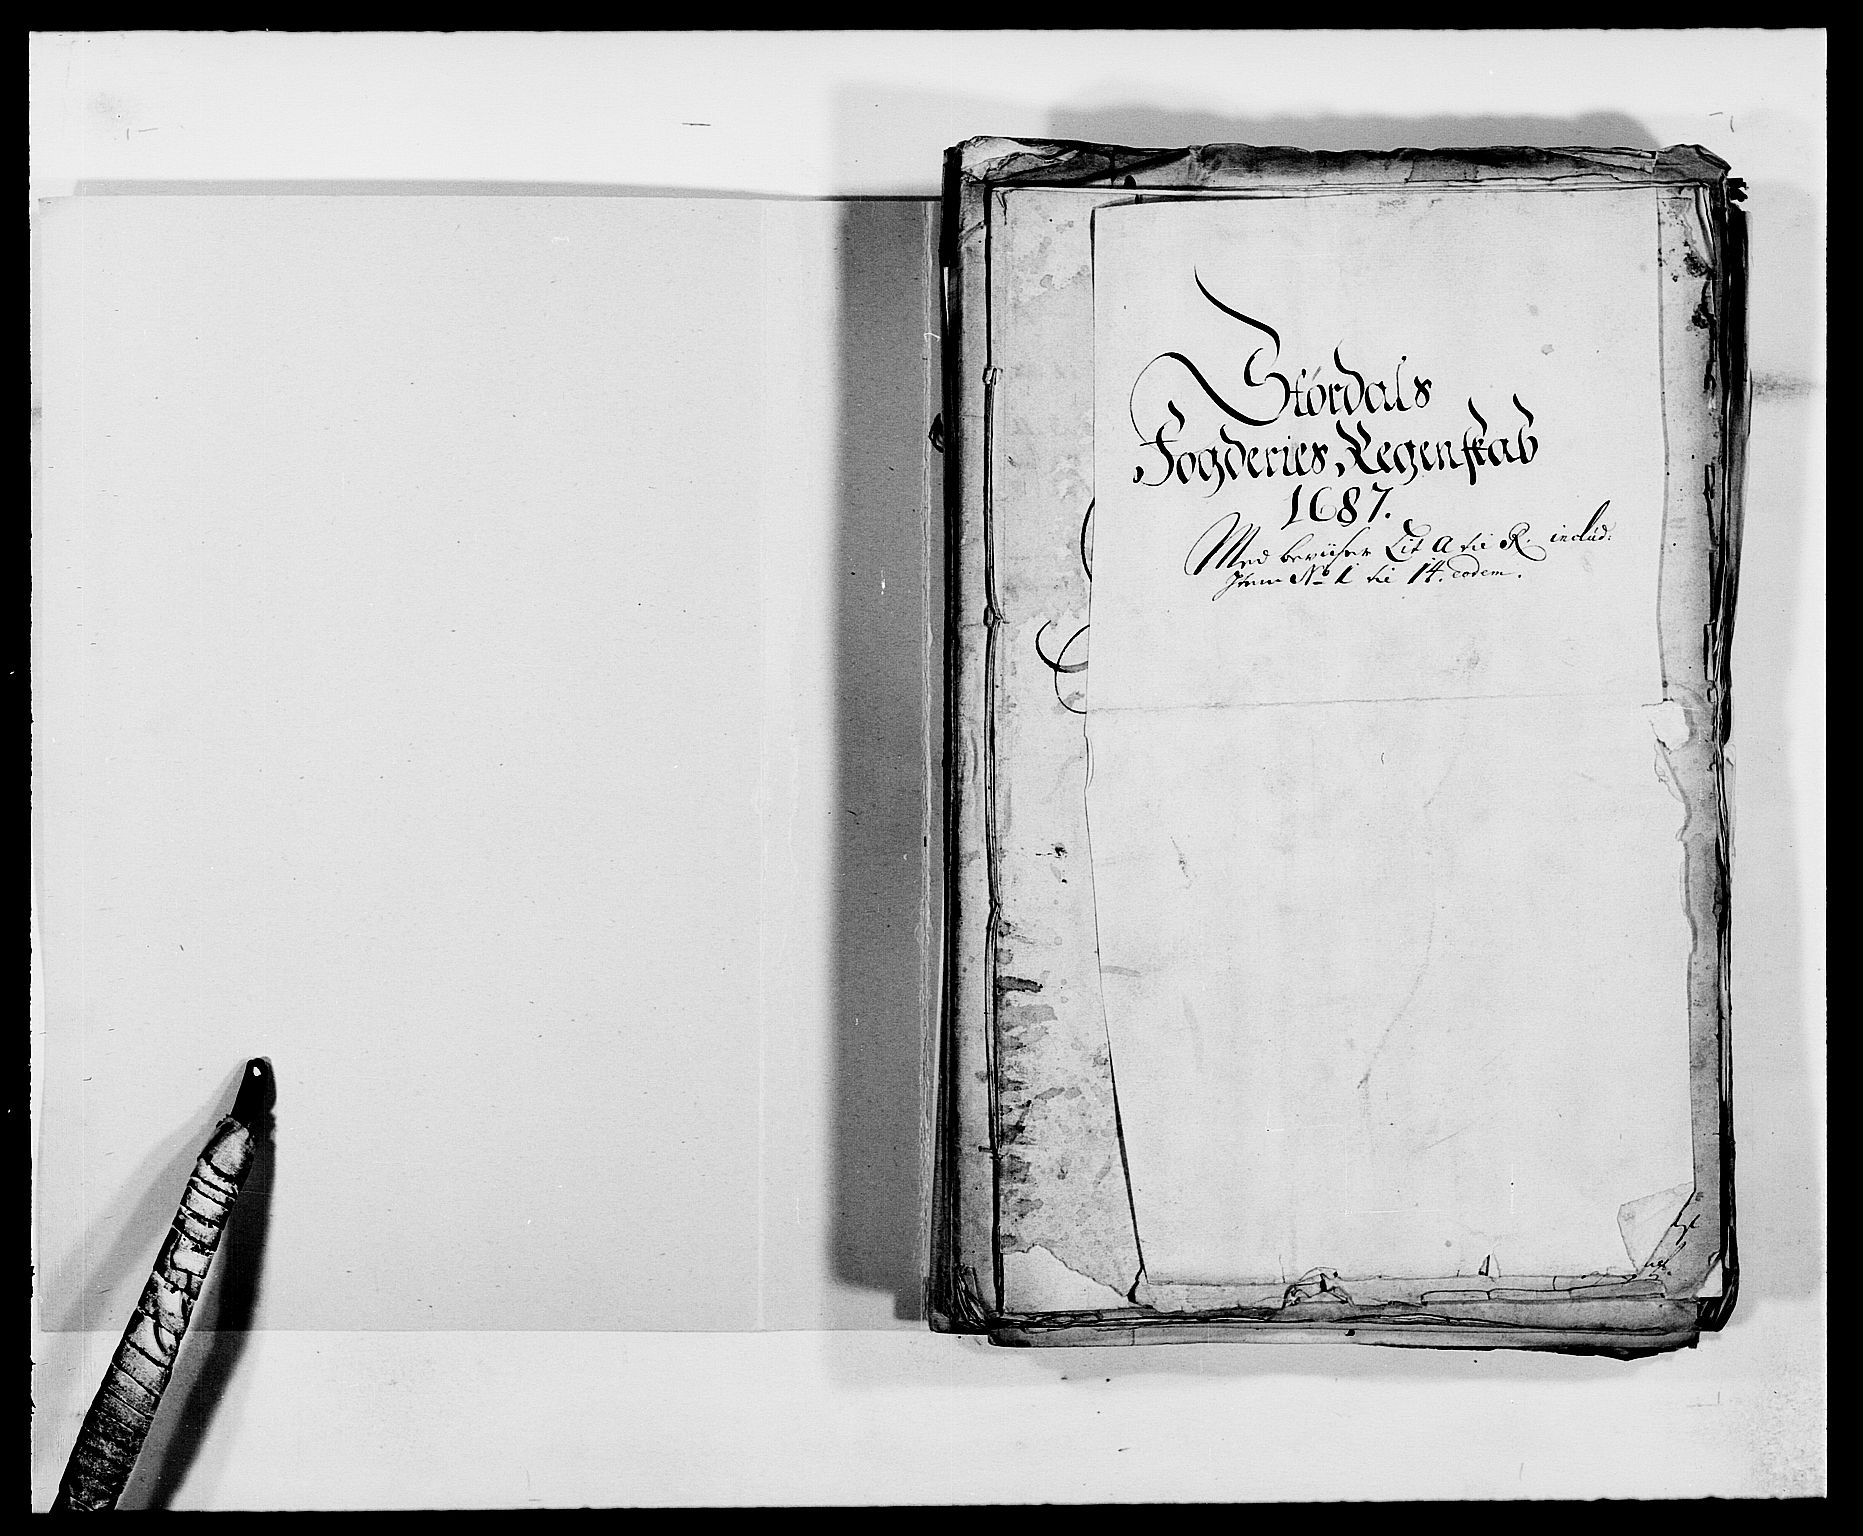 Størdals
Fogderies Regenskab
1687.
Med beviiser Lit A til R. includ:
Item No 1 til 14. eodem.